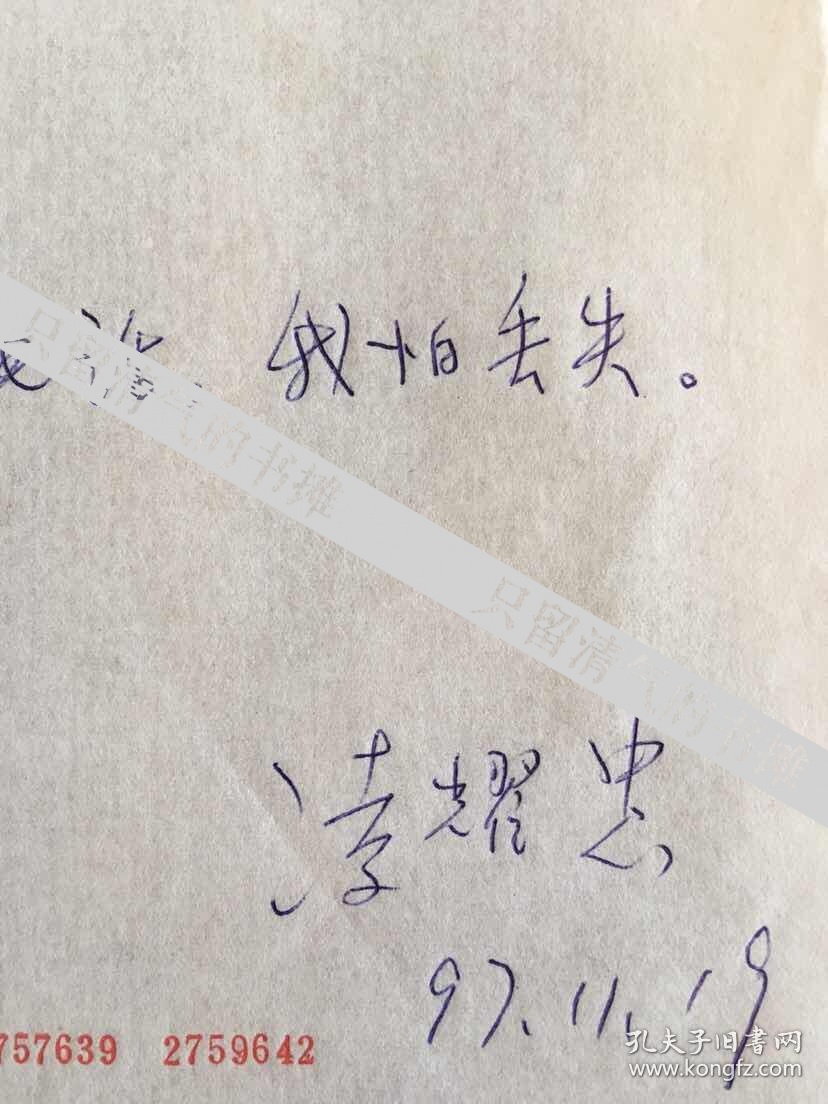 我怕丢失。
只留清气的书摊
只留清气的书摊
凌耀忠
97.11.19
757639 2759642
孔夫子旧书网
www.kongfz.com